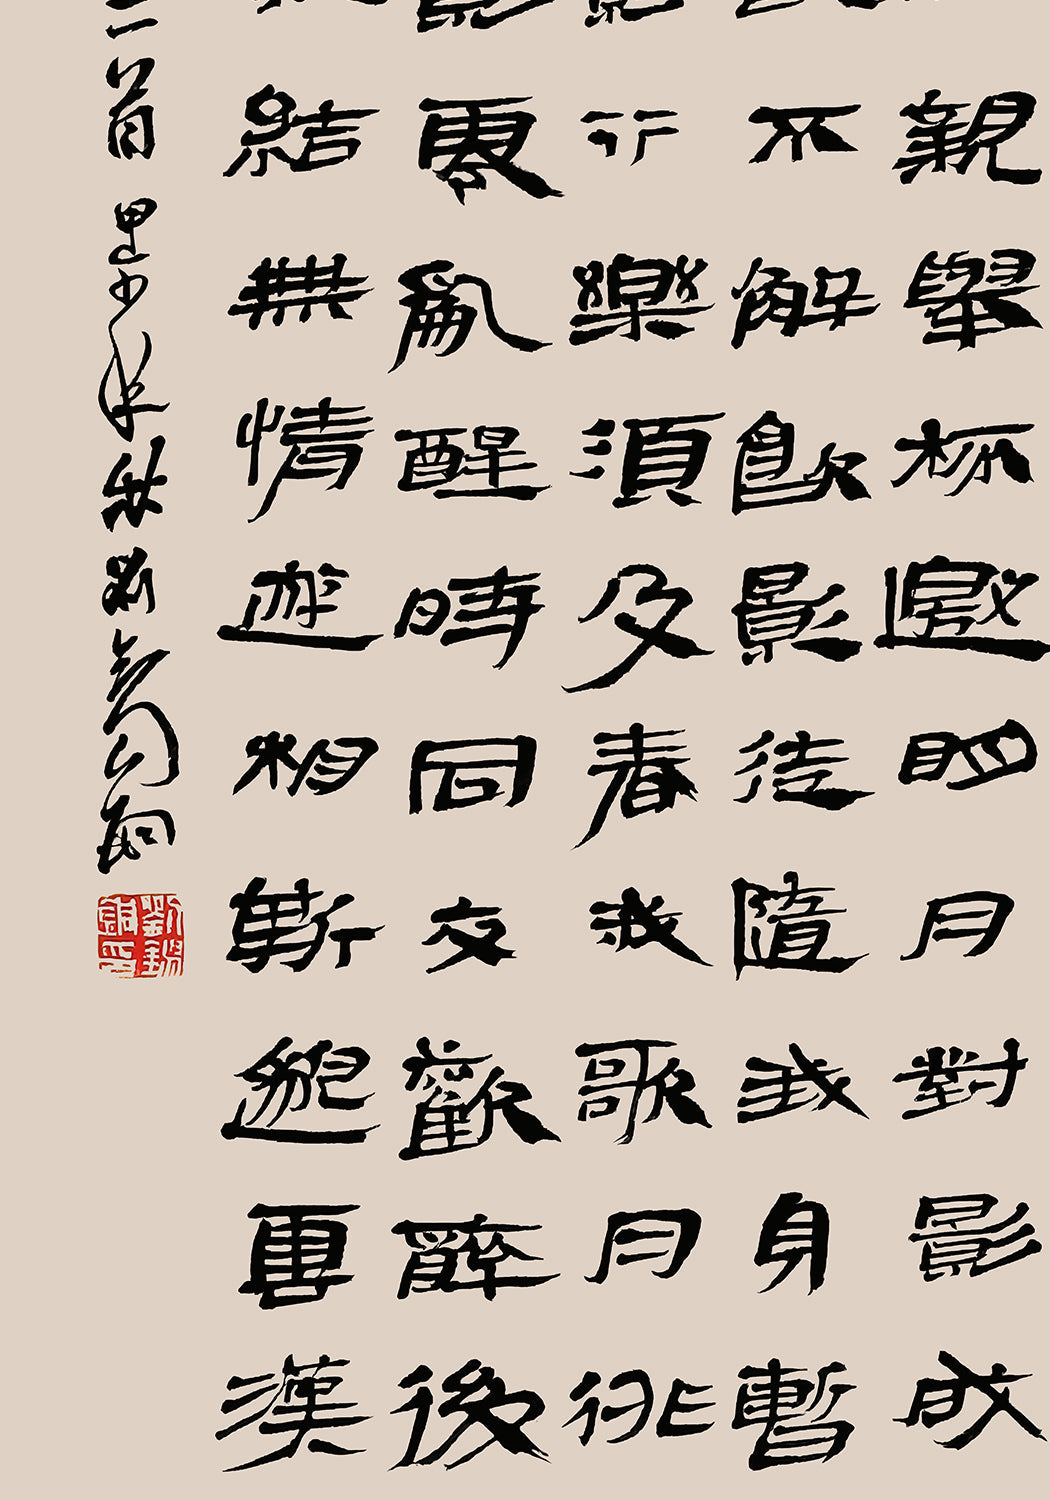 親舉杯邀明月對影成
不解飲影徒隨我身暫
行樂須及春我歌月徘
零亂醒時同交歡醉後
結無情遊相期邈雲漢
二首 年秋劉錫銅
劉錫銅印